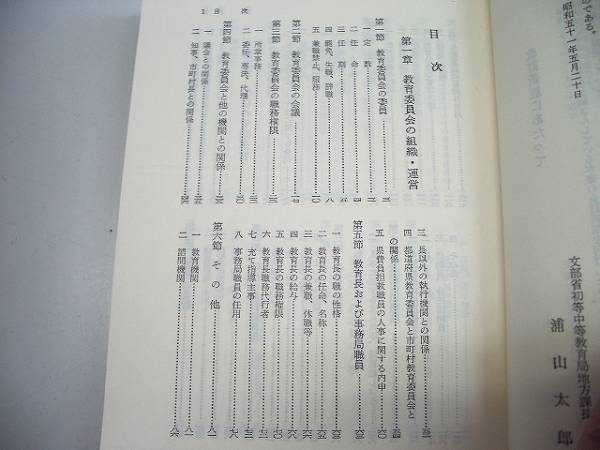 のである。
昭和五十一年五月二十日
文部省初等中等教育局地方課長
浦山太郎
目次
第一章 教育委員会の組織・運営
第一節 教育委員会の委員
一 定数
二 任命
三 任期
四 罷免、失職、辞職
五 兼職禁止、服務
第二節 教育委員会の会議
第三節 教育委員会の職務権限
一 所掌事務
二 委任、専決、代理
第四節 教育委員会と他の機関との関係
一 議会との関係
二 知事、市町村長との関係
三 長以外の執行機関との関係
四 都道府県教育委員会と市町村教育委員会と
の関係
五 県費負担教職員の人事に関する内申
第五節 教育長および事務局職員
一 教育長の職の性格
二 教育長の任命、名称
三 教育長の兼職、休職等
四 教育長の給与
五 教育長の職務権限
六 教育長職務代行者
七 充て指導主事
八 事務局職員の任用
第六節 その他
一 教育機関
二 諮問機関
目次